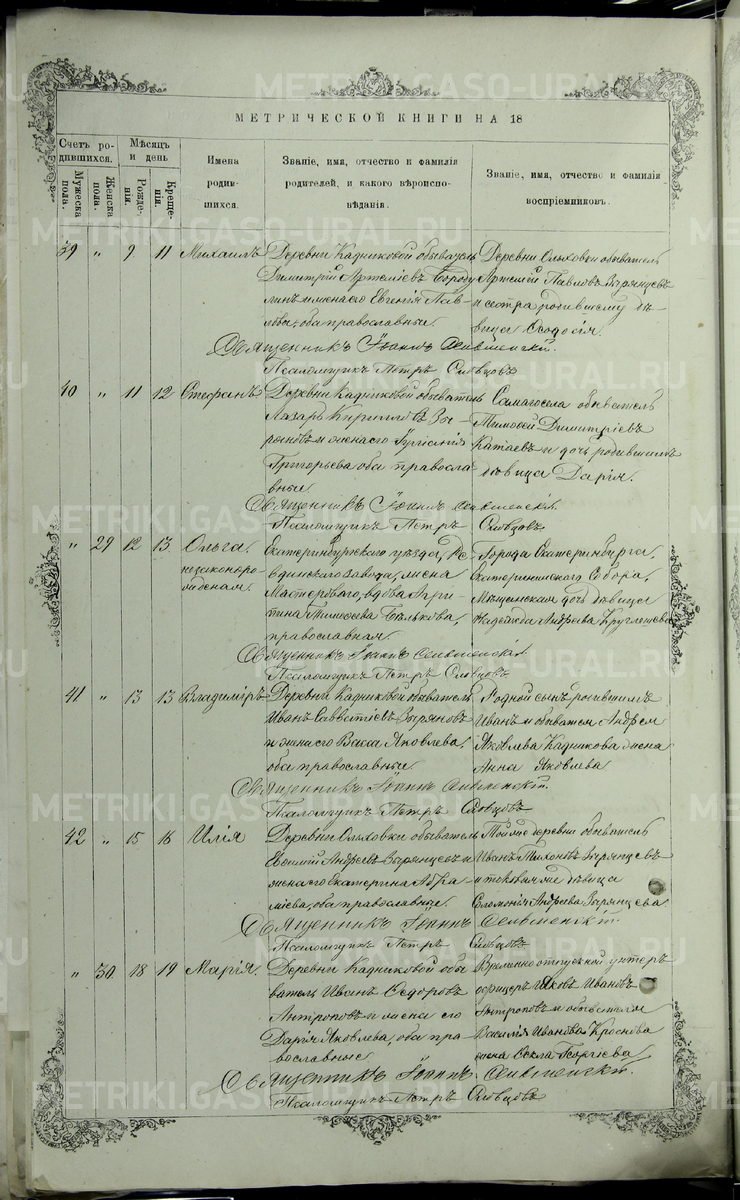 МЕТРИЧЕСКОЙ КНИГИ НА 18
Счетъ родившихся.
Мужеска пола.
Женска пола.
Мѣсяцъ и день
Рожденія.
Крещенія.
Имена родившихся.
Званіе, имя, отчество и фамилія родителей, и какого вѣроисповѣданія.
Званіе, имя, отчество и фамилія воспріемниковъ.
39 " 9 11 Михаилъ
Деревни Кадниковой обыватель
Димитрій Артеміевъ
линъ и жена его Евгенія Пав
лова, оба православные.
Деревни Ольховки обыватель
Артемій Павловъ Зырянцевъ
и сестра родившему дѣ
вица Ѳеодосія.
Священникъ Іоаннъ
Псаломщикъ Петръ Словцовъ
40 " 11 12 Стефанъ
Деревни Кадниковой обыватель
Лазарь Кирилловъ Зы
ряновъ и жена его
Григорьева оба правосла
вные.
Самагосела обыватель
Тимофей Димитріевъ
Катаевъ и дочь родившимъ
дѣвица Дарія.
Священникъ Іоаннъ
Псаломщикъ Петръ Словцовъ
" 29 12 13 Ольга.
незаконоро
жденная.
Екатеринбургскаго уѣзда, Ре
вдинскаго завода, жена
Мастероваго, вдова Ири
на Тимоѳеева Бѣлькова,
православная.
Города Екатеринбурга,
Екатерининскаго Собора,
Мѣщанская дочь дѣвица
Надежда Андреева
Священникъ Іоаннъ
Псаломщикъ Петръ Словцовъ
41 " 13 13 Владиміръ
Деревни Кадниковой обыватель
Иванъ Савватіевъ Зыряновъ
и жена его Васса Яковлева,
оба православные
Родной сынъ родившимъ
Иванъ и обывателя Андрея
Яковлева Кадникова жена
Анна Яковлева
Священникъ Іоаннъ
Псаломщикъ Петръ Словцовъ
42 " 15 16 Илія
Деревни Ольховки обыватель
Евѳимій Андреевъ Зырянцевъ и
жена его Екатерина Абра
міева, оба православные.
Тойже деревни обыватель
Иванъ Тихоновъ Зырянцевъ
и таковая же дѣвица
Соломонія Андреева Зырянцева
Священникъ Іоаннъ
Псаломщикъ Петръ Словцовъ
" 30 18 19 Марія.
Деревни Кадниковой обы
ватель Иванъ Ѳедоровъ
Антроповъ и жена его
Дарія Яковлева, оба пра
вославные
Временно отпускной унтеръ
офицеръ Яковъ Ивановъ
Антроповъ и обывателя
Василія Иванова
жена Ѳекла Георгіева
Священникъ Іоаннъ
Псаломщикъ Петръ Словцовъ
METRIKI.GASO-URAL.RU